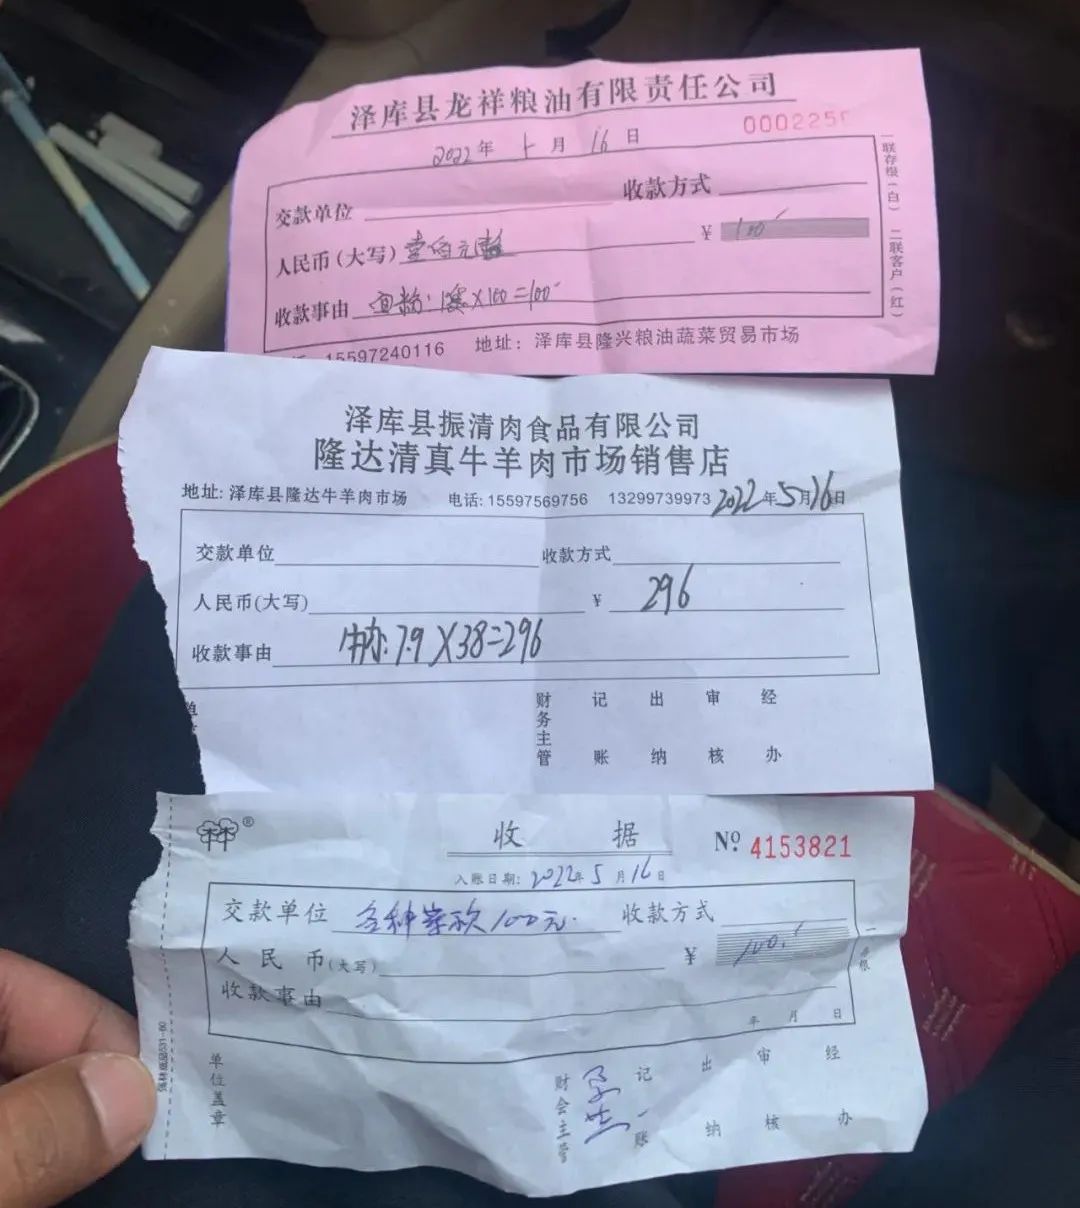 泽库县龙祥粮油有限责任公司
2022年 5月 16日 000225
交款单位 收款方式
人民币(大写)壹佰元整 ¥ 100
收款事由 面粉:1袋×100=100
15597240116 地址:泽库县隆兴粮油蔬菜贸易市场
一联存根(白) 二联客户(红)
泽库县振清肉食品有限公司
隆达清真牛羊肉市场销售店
地址:泽库县隆达牛羊肉市场 电话:15597569756 13299739973 2022年5月16日
交款单位 收款方式
人民币(大写) ¥ 296
收款事由 牛肉:7.9×38=296
财务主管 记账 出纳 审核 经办
收 据 Nº 4153821
入账日期:2022年5月16日
交款单位 各种菜款100元. 收款方式
人民币(大写) ¥ 100.
收款事由
年 月 日
单位盖章 财会主管 记账 出纳 审核 经办